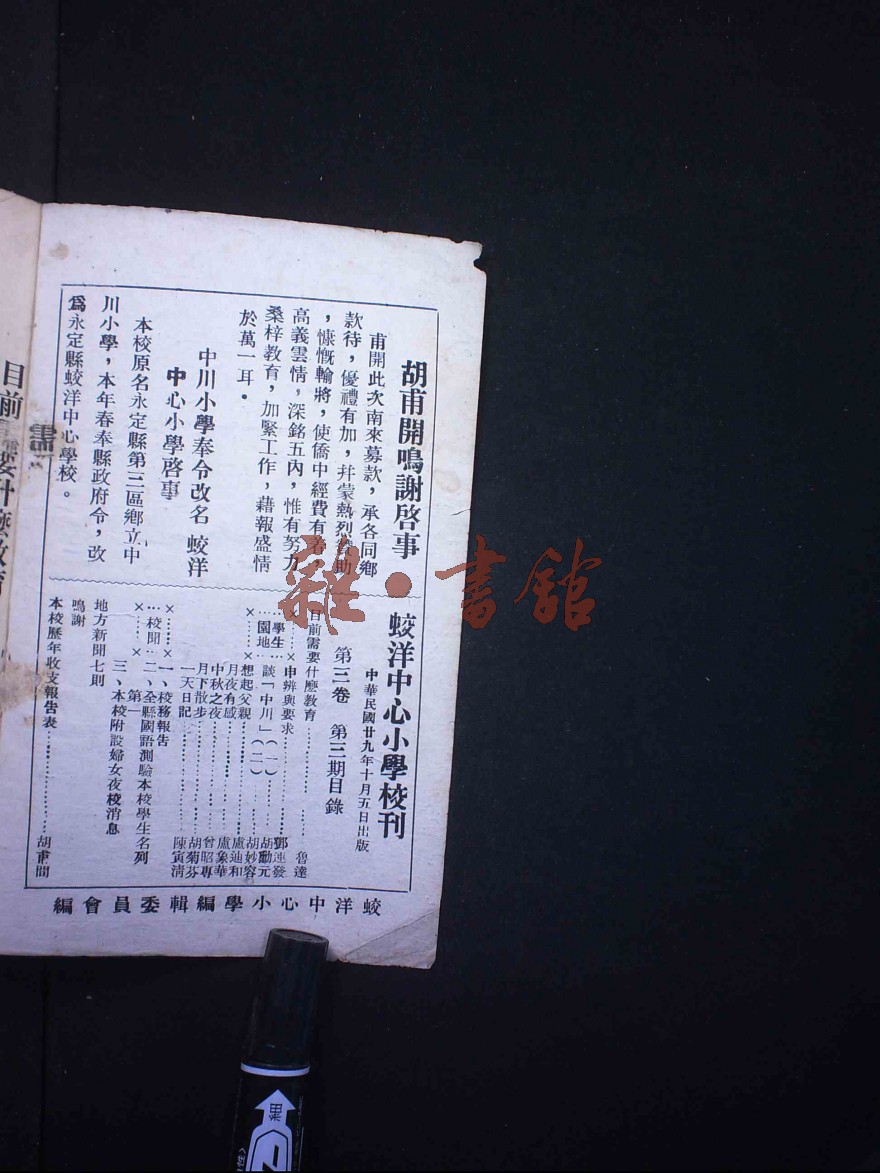 胡甫開鳴謝啓事
甫開此次南來募款，承各同鄉
款待，優禮有加，幷蒙熱烈贊助
，慷慨輸將，使僑中經費有着，
高義雲情，深銘五內，惟有努力
桑梓教育，加緊工作，藉報盛情
於萬一耳．
中川小學奉令改名 蛟洋
中心小學啓事
本校原名永定縣第三區鄉立中
川小學，本年春奉縣政府令，改
爲永定縣蛟洋中心學校。
蛟洋中心小學校刊
中華民國廿九年十月五日出版
第三卷 第三期目錄
目前需要什麼教育………魯達
申辨與要求………鄧連發
×……×
…學生…
…園地…
×……×
談「中川」（一）……胡勵元
（二）……胡妙容
想起父親………盧迪和
月夜有感………盧象華
中秋之夜………曾昭專
月下散步………胡菊芬
一天日記………陳寅清
×……×
…校聞…
×……×
一、校務報告
二、全縣國語測驗本校學生名列
第一
三、本校附設婦女夜校消息
地方新聞七則
鳴謝
本校歷年收支報告表………胡甫開
蛟洋中心小學編輯委員會編
目前需要什麼教育
雜·書館
細